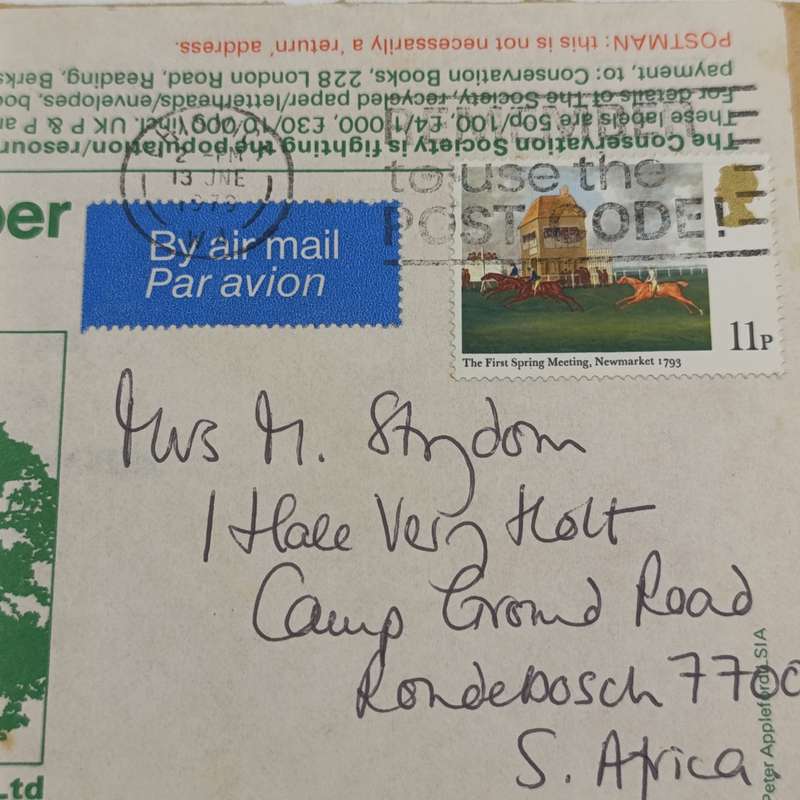 POSTMAN: this is not necessarily a 'return' address.
payment, to: Conservation Books, 228 London Road, Reading, Berks
For details of The Society, recycled paper/letterheads/envelopes, boo
These labels are 50p/100, £4/1,000, £30/10,000 incl. UK P & P ar
The Conservation Society is fighting the population/resour
2 - PM
13 JNE
1979
REMEMBER
to use the
POST CODE!
per
By air mail
Par avion
11P
The First Spring Meeting, Newmarket 1793
Mrs M. Strydom
1 Hale Very Holt
Camp Ground Road
Rondebosch 7700
S. Africa
Peter Appleford LSIA
Ltd